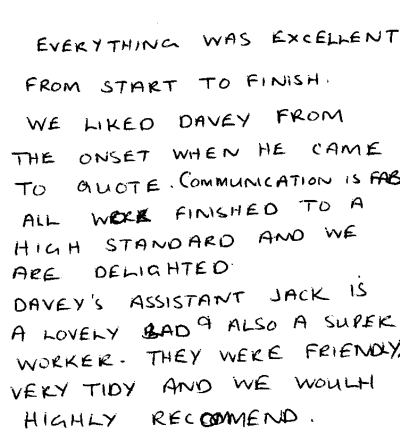 EVERYTHING WAS EXCELLENT
FROM START TO FINISH.
WE LIKED DAVEY FROM
THE ONSET WHEN HE CAME
TO QUOTE. COMMUNICATION IS FAB
ALL WORK FINISHED TO A
HIGH STANDARD AND WE
ARE DELIGHTED.
DAVEY'S ASSISTANT JACK IS
A LOVELY LAD & ALSO A SUPER
WORKER. THEY WERE FRIENDLY,
VERY TIDY AND WE WOULD
HIGHLY RECOMMEND.